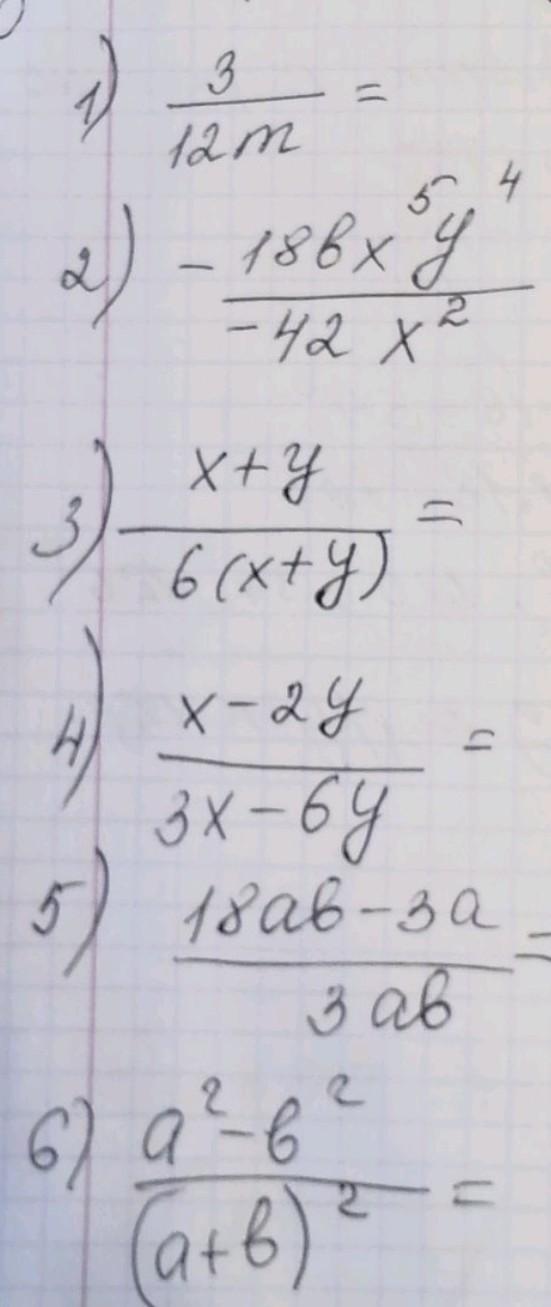 1) 3/12m =
2) -18bx⁵y⁴/-42x²
3) x+y/6(x+y) =
4) x-2y/3x-6y =
5) 18ab-3a/3ab =
6) a²-b²/(a+b)² =